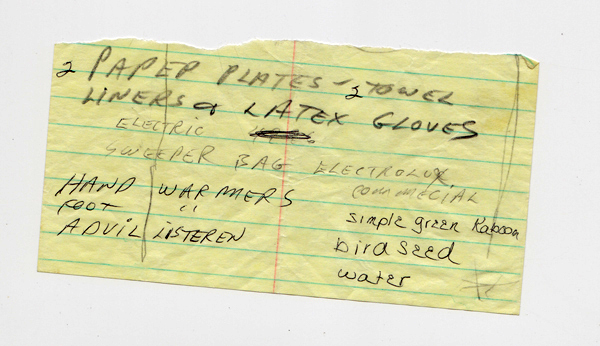 2 PAPER PLATES - 2 TOWEL
LINERS & LATEX GLOVES
ELECTRIC
SWEEPER BAG ELECTROLUX
COMMECIAL
HAND WARMERS
FOOT "
ADVIL LISTEREN
simple green Kaboom
birdseed
water